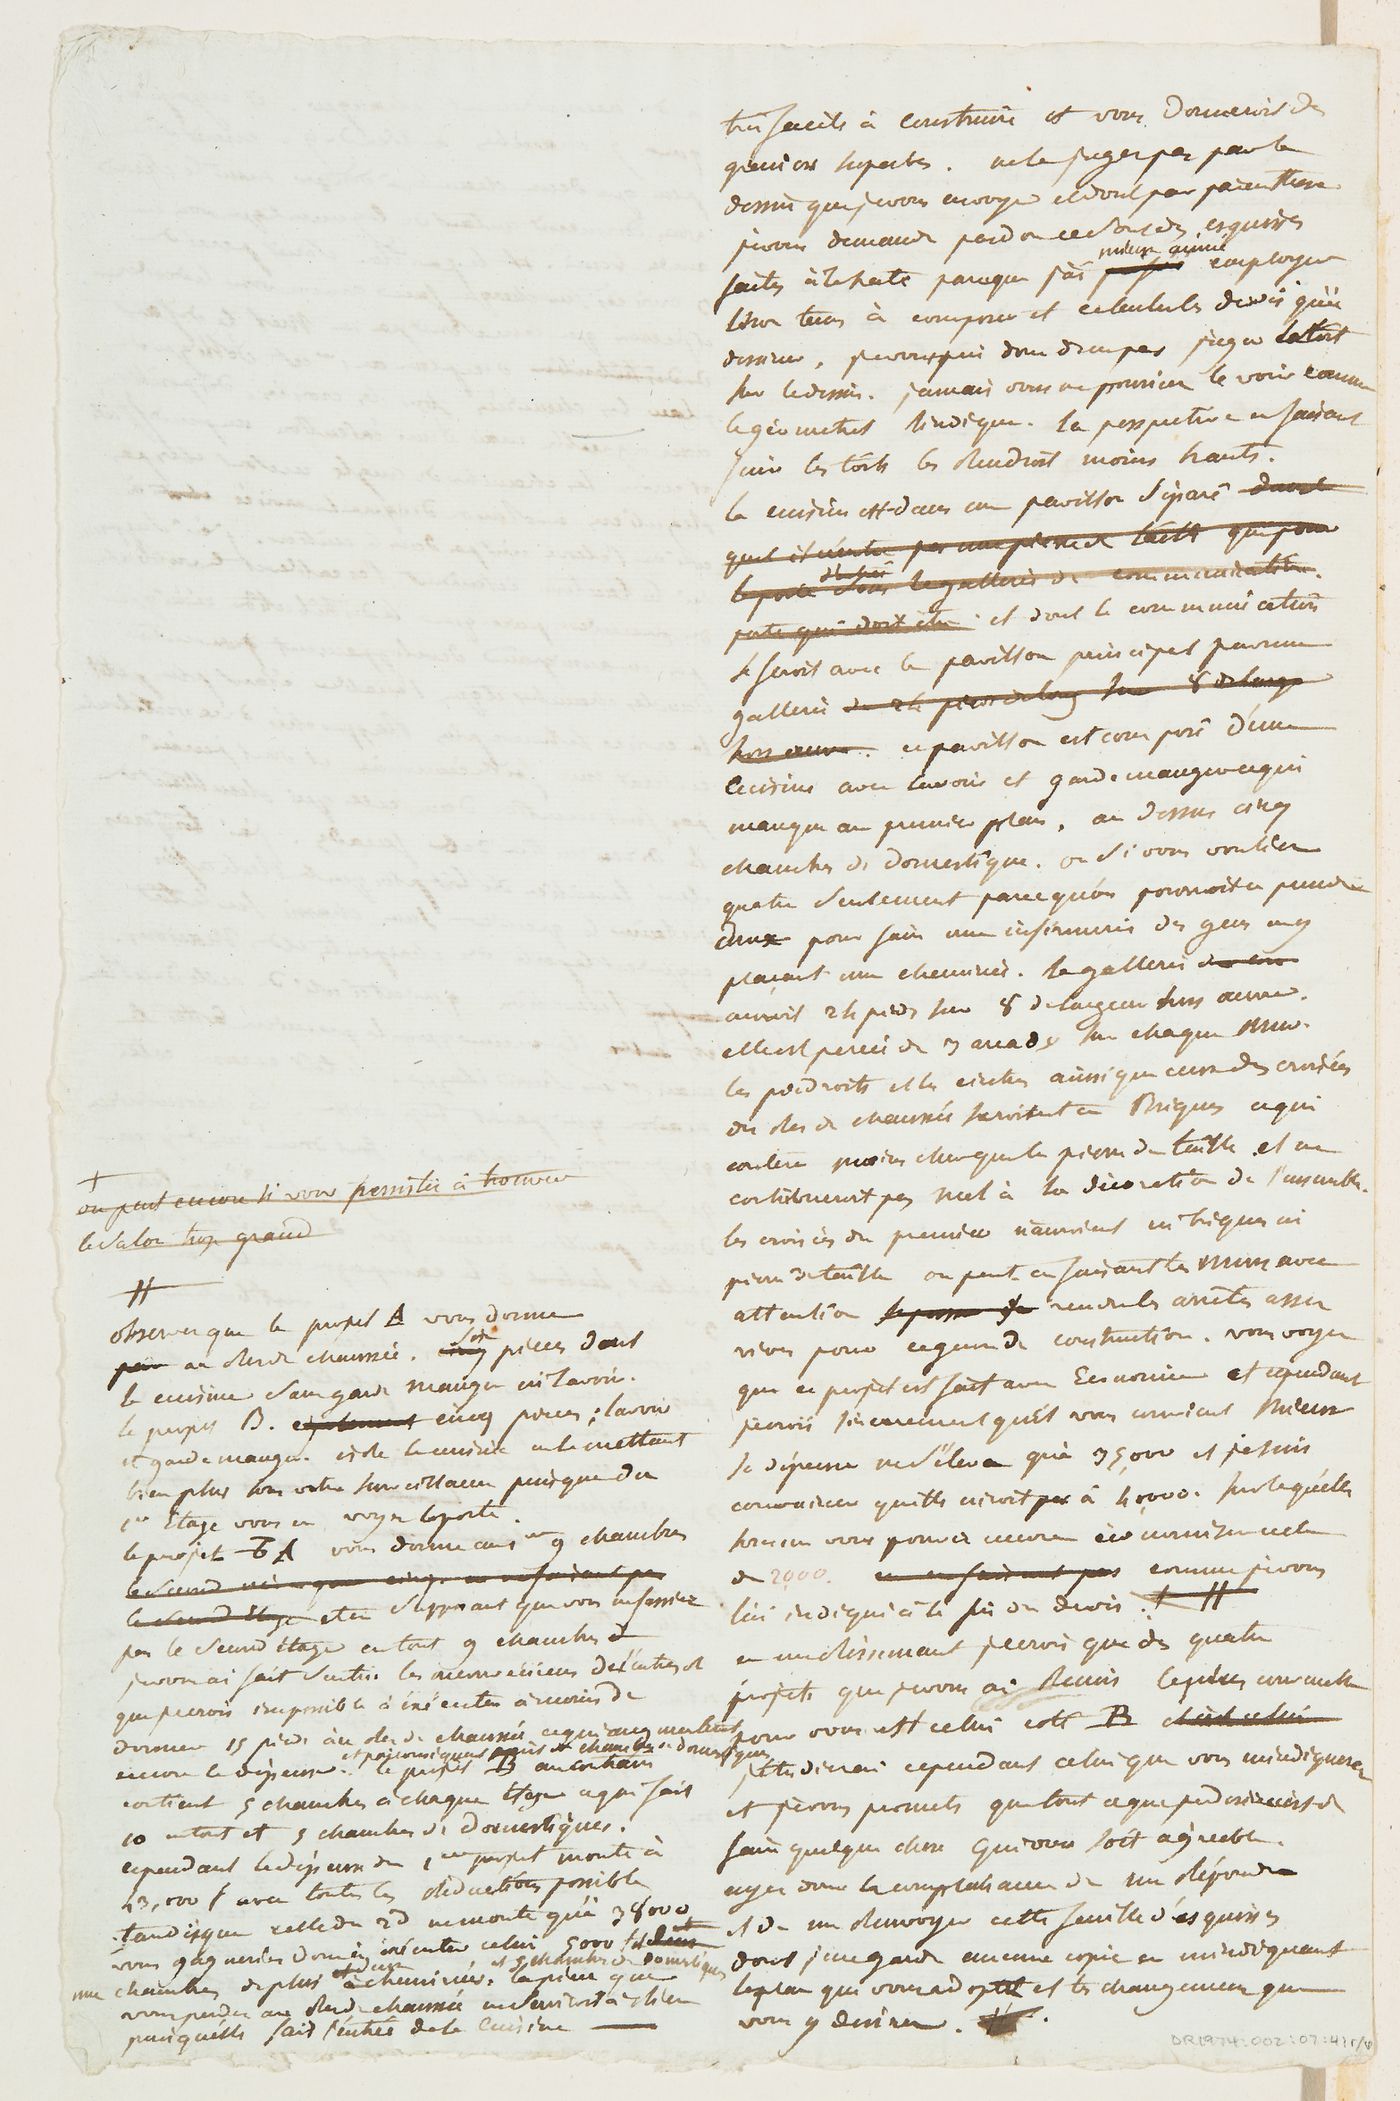 très facile à construire et vous donneroit des
greniers superbes. ne le jugez pas par le
dessin que je vous envoye et dont par parenthese
je vous demande pardon ce sont des esquisses
faites à la hate parceque j'ai mieux aimé employer
mon tems à composer et calculer les devis qu'à
dessiner, je vous prie donc de ne pas juger le toit
sur le dessin. jamais vous ne pourriez le voir comme
le géometral l'indique. la perspective en faisant
fuir les toits les rendroit moins hauts.
la cuisine est dans un pavillon séparé dans
quel il n'entre pas une pierre de taille que pour
la porte sous la gallerie de communication.
porte qui doit être. et dont la communication
se feroit avec le pavillon principal par une
gallerie de 24 pieds de long sur 8 de large
hors œuvre. ce pavillon est composé d'une
cuisine avec lavoir et garde manger ce qui
manque au premier plan, au dessus cinq
chambres de domestique. ou si vous vouliez
quatre seulement parcequ'on pourroit en prendre
deux pour faire une infirmerie des gens en y
plaçant une cheminée. la gallerie
auroit 24 pieds sur 8 de largeur hors œuvre.
elle est percée de 3 arcades sur chaque mur.
les piedroits et les cintres ainsi que ceux des croisées
du rez de chaussée seroient en Briques ce qui
coutera moins cher que la pierre de taille et ne
contribueroit pas mal à la décoration de l'ensemble.
les croisées du premier n'auroient ni briques ni
pierre de taille on peut en faisant les murs avec
attention rendre les arrêtes assez
vives pour ce genre de construction. vous voyez
que ce projet est fait avec Economie et cependant
je crois sincerement qu'il vous convient mieux
la dépense ne s'éleve qu'à 38,000 et je suis
convaincu qu'elle n'iroit pas à 40000. sur laquelle
somme vous pouvez encore économiser celle
de 2000. en en faisant pas comme je vous
l'ai indiqué à la fin du devis. + #
en me résumant je crois que des quatre
projets que je vous ai remis le plus convenable
pour vous est celui coté B
j'étudierai cependant celui que vous m'indiquerez
et je vous promets que tout ce que je desire est de
faire quelque chose qui vous soit agréable.
ayez donc la complaisance de me répondre
et de me renvoyer cette feuille d'esquisses
dont je ne garde aucune copie en m'indiquant
le plan que vous adoptez et les changemens que
vous y desirez. #.
+
on peut encore si vous persistez à trouver
le salon trop grand
#
observez que le projet A vous donne
au rez de chaussée. six pieces dont
la cuisine sans garde manger ni lavoir.
le projet B. cinq pieces; lavoir
et garde manger. isole la cuisine en la mettant
bien plus sous votre surveillance puisque du
1er Etage vous en voyez la porte.
le projet A vous donne au 1er 9 chambres
le second
le second étage et en supposant que vous ne fassiez
pas le second étage en tout 9 chambres
je vous ai fait sentir les inconveniens de l'entresol
que je crois impossible à éxécuter à moins de
donner 15 pieds au rez de chaussée ce qui augmenteroit
encore la dépense. le projet B au contraire
contient 5 chambres à chaque étage ce qui fait
10 en tout et 5 chambres de domestiques.
cependant la dépense du 1er projet monte à
43,000 f avec toutes les réductions possibles
tandisque celle du 2d ne monte qu'à 38000
vous gagneriez donc à éxécuter celui 5000 f
une chambre de plus à cheminée. et 5 chambres de domestiques la piece que
vous perdez au rez de chaussée ne serviroit à rien
puisqu'elle fait l'entrée de la cuisine
DR1974:002:07:41 r/v